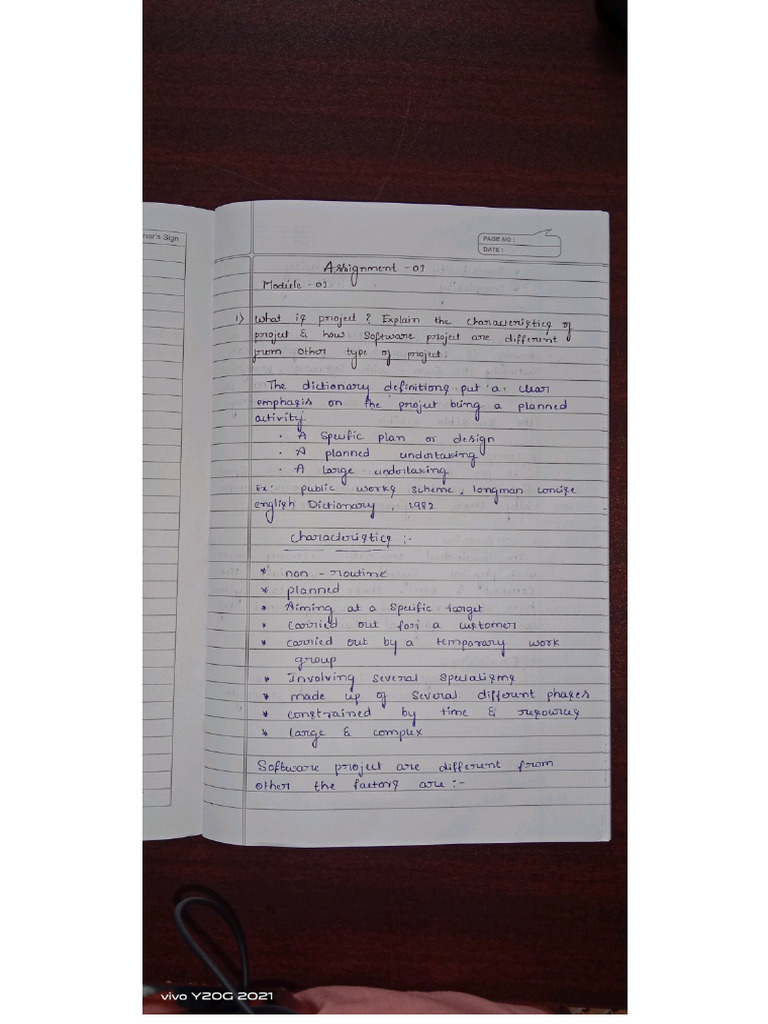 ner's Sign
PAGE NO :
DATE :
Assignment - 03
Module - 03
1) What is project ? Explain the characteristics of
project & how Software project are different
from other type of project.
The dictionary definitions put a clear
emphasis on the project being a planned
activity.
· A Specific plan or design
· A planned undertaking
· A large undertaking
Ex: public works scheme, longman concise
english Dictionary, 1982
Characteristics :-
* non - routine
* planned
* Aiming at a specific target
* carried out for a customer
* carried out by a temporary work
group
* Involving several specialisms
* made up of several different phases
* constrained by time & resources
* large & complex
Software project are different from
other the factors are :-
vivo Y20G 2021